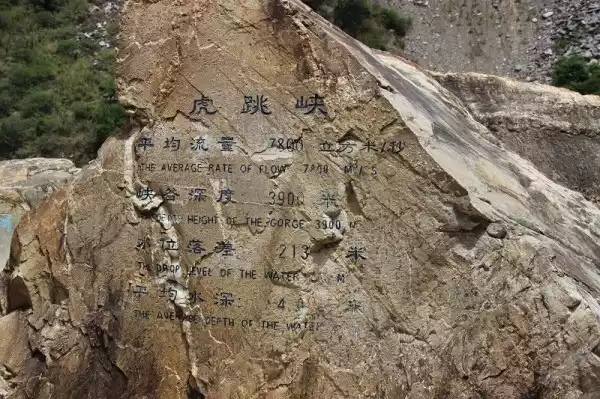 虎跳峡
平均流量 7800 立方米/秒
THE AVERAGE RATE OF FLOW 7800 M³/S
峡谷深度 3900 米
HEIGHT OF THE GORGE 3900 M
水位落差 213 米
THE DROP LEVEL OF THE WATER M
平均水深: 米
THE AVERAGE DEPTH OF THE WATER